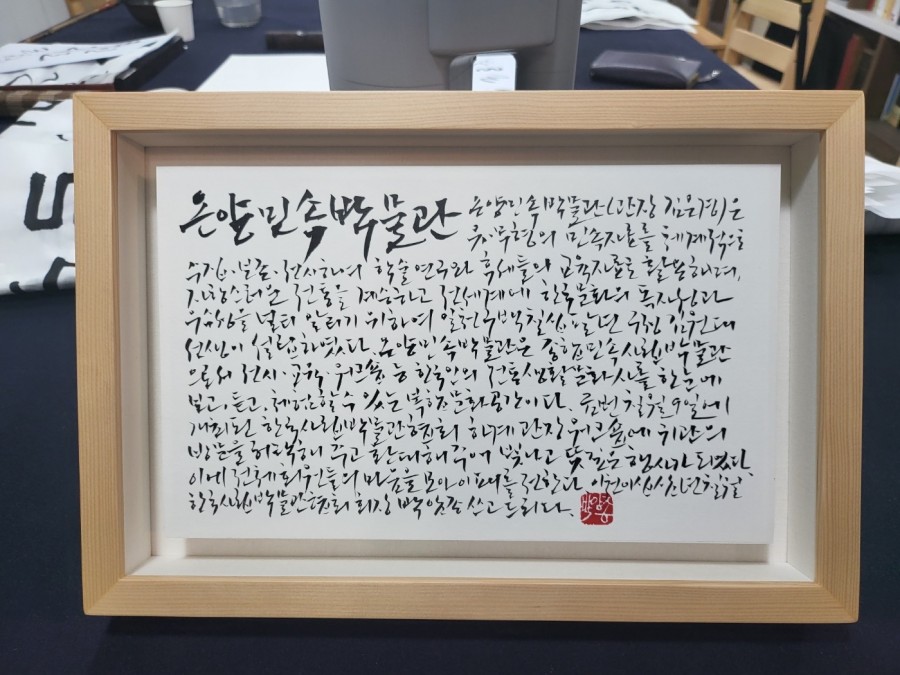 온양민속박물관
온양민속박물관(관장 김은경)은
유·무형의 민속자료를 체계적으로
수집·보존·전시하여 학술연구와 후세들의 교육자료로 활용하며,
자랑스러운 전통을 계승하고 전세계에 한국문화의 독자성과
우수성을 널리 알리기 위하여 일천구백칠십팔년 구정 김원대
선생이 설립하였다. 온양민속박물관은 종합민속사립박물관
으로써 전시·교육·워크숍 등 한국인의 전통생활문화사를 한눈에
보고, 듣고, 체험할 수 있는 복합문화공간이다. 금번 칠월 9일에
개최된 한국사립박물관협회 하계 관장 워크숍에 귀관의
방문을 허락해 주고 환대해 주어 빛나고 뜻깊은 행사가 되었다.
이에 전체 회원들의 마음을 모아 이 패를 전한다. 이천이십삼년 칠월
한국사립박물관협회 회장 박암종 쓰고 드리다.